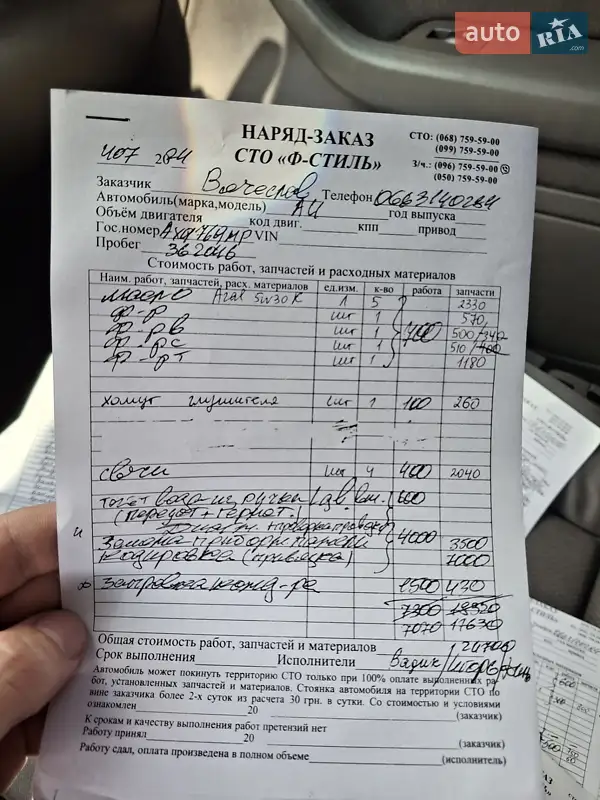 auto RIA .com
НАРЯД-ЗАКАЗ
СТО «Ф-СТИЛЬ»
СТО: (068) 759-59-00
(099) 759-59-00
З/ч.: (096) 759-59-00
(050) 759-59-00
Заказчик Вячеслав Телефон
Автомобиль(марка,модель) год выпуска
Объём двигателя код двиг. кпп привод
Гос.номер VIN
Пробег 362016
Стоимость работ, запчастей и расходных материалов
Наим. работ, запчастей, расх. материалов ед.изм. к-во работа запчасти
масло Aral 5w30 К л 5 2330
ф-р шт 1 570
ф-р в шт 1 700 500/340
ф-р с шт 1 510/400
ф-р т шт 1 1180
хомут глушителя шт 1 100 260
свечи шт 4 400 2040
(передат + гермет.)
4000
Замена приборт панели 3500
Кодировка (привязка) 7000
Заправка конд-ра 1500 430
7300 18350
7070 17630
Общая стоимость работ, запчастей и материалов 24700
Срок выполнения Исполнители Вадим/Игорь/
Автомобиль может покинуть территорию СТО только при 100% оплате выполненных ра-
бот, установленных запчастей и материалов. Стоянка автомобиля на территории СТО по
вине заказчика более 2-х суток из расчета 30 грн. в сутки. Со стоимостью и условиями
ознакомлен 20 (заказчик)
К срокам и качеству выполнения работ претензий нет
Работу принял 20 (заказчик)
Работу сдал, оплата произведена в полном объеме (исполнитель)